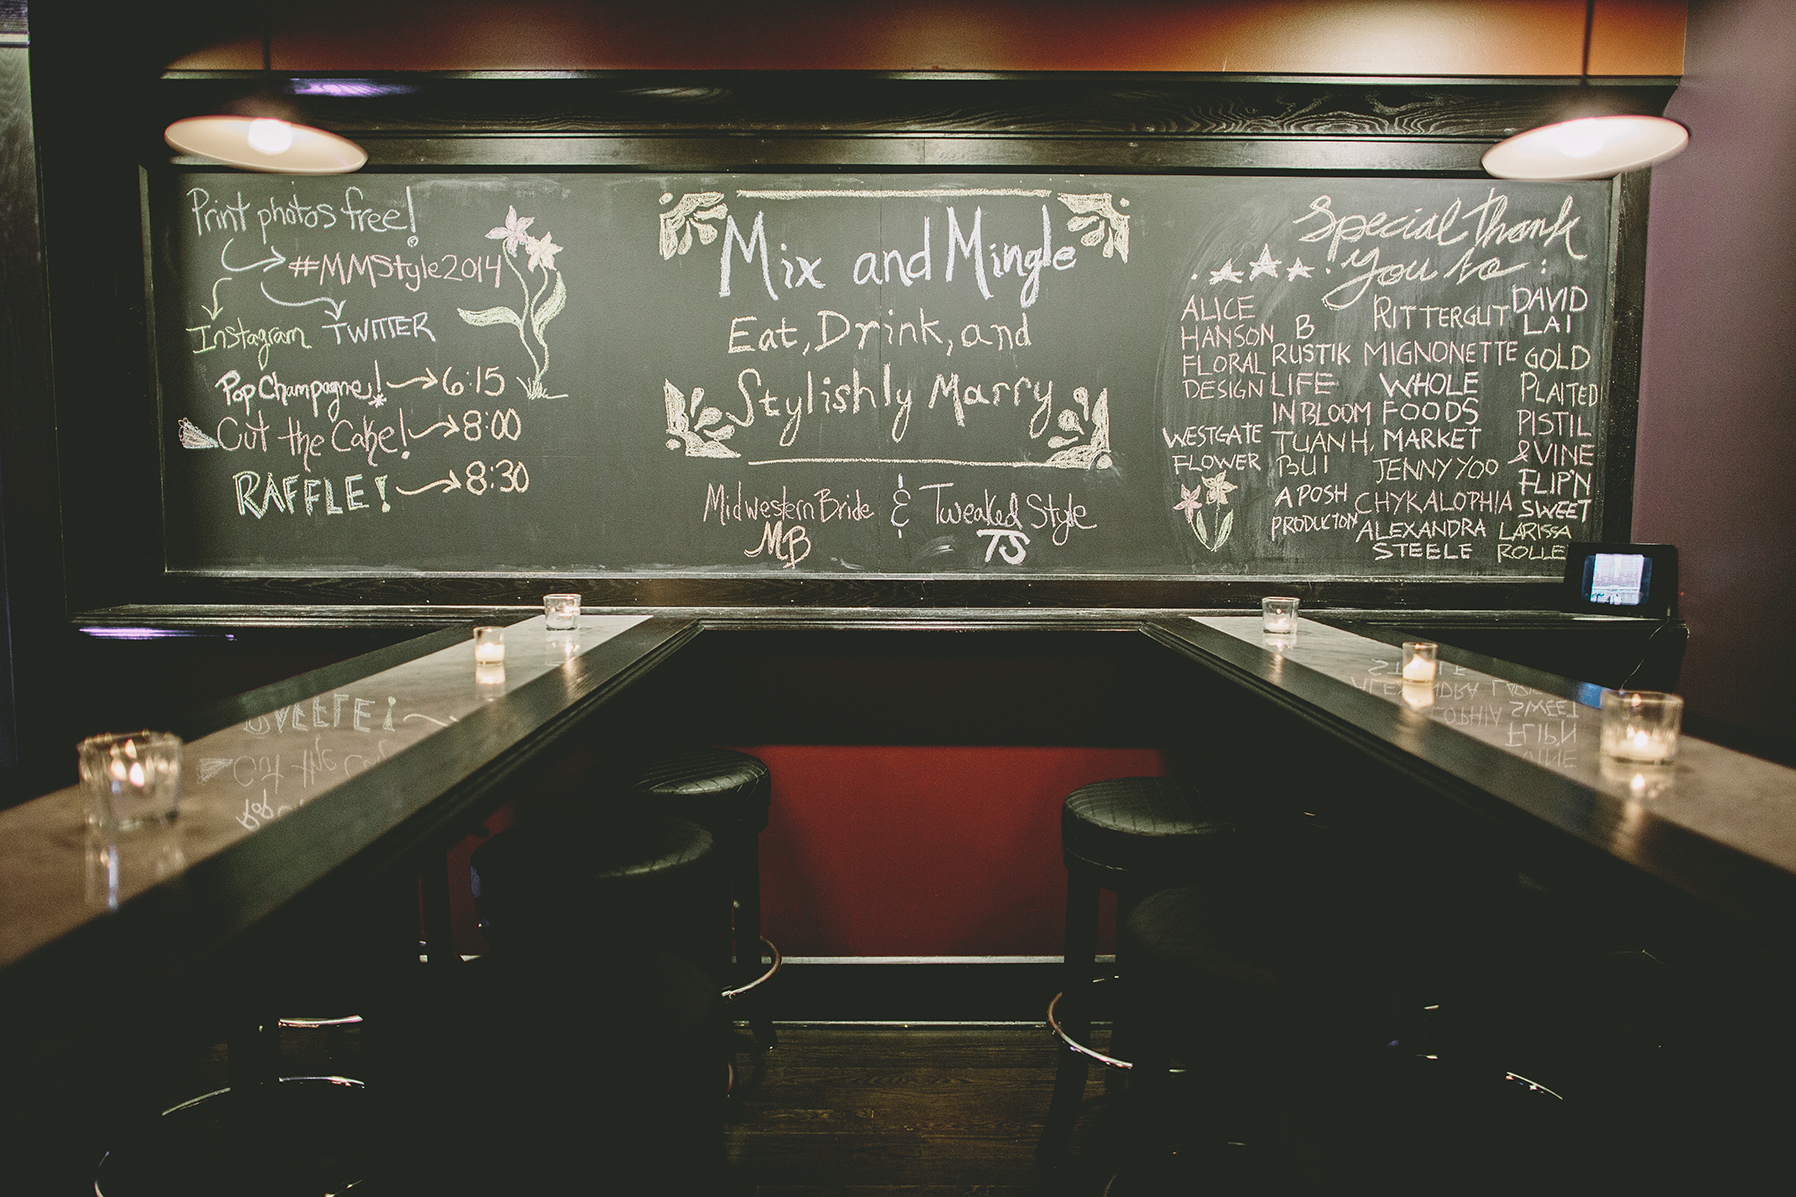 Print photos free!
#MMStyle2014
Instagram TWITTER
Pop Champagne! 6:15
Cut the Cake! 8:00
RAFFLE! 8:30
Mix and Mingle
Eat, Drink, and
Stylishly Marry
Midwestern Bride & Tweaked Style
MB TS
Special Thank
you to :
ALICE
HANSON
FLORAL
DESIGN
WESTGATE
FLOWER
B
RUSTIK
LIFE
INBLOOM
TUAN H.
BUI
A POSH
PRODUCTION
RITTERGUT
MIGNONETTE
WHOLE
FOODS
MARKET
JENNY YOO
CHYKALOPHIA
ALEXANDRA
STEELE
DAVID
LAI
GOLD
PLAITED
PISTIL
& VINE
FLIP'N
SWEET
LARISSA
ROLLE